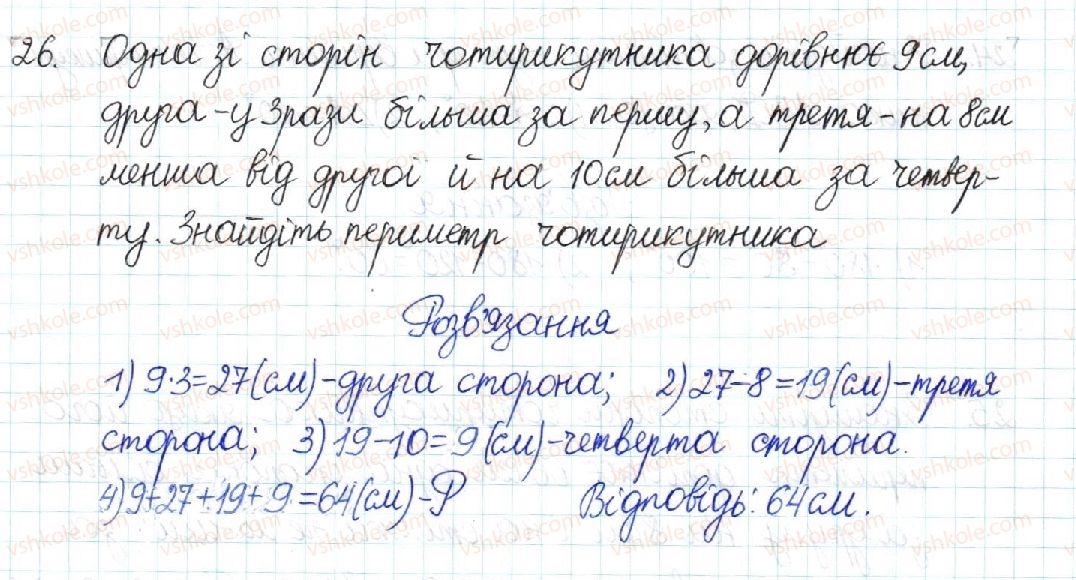 26. Одна зі сторін чотирикутника дорівнює 9 см,
друга - у 3 рази більша за першу, а третя - на 8 см
менша від другої й на 10 см більша за четвер-
ту. Знайдіть периметр чотирикутника
Розв'язання
1) 9·3=27(см)-друга сторона; 2) 27-8=19(см)-третя
сторона; 3) 19-10=9(см)-четверта сторона.
4) 9+27+19+9=64(см)-P Відповідь: 64 см.